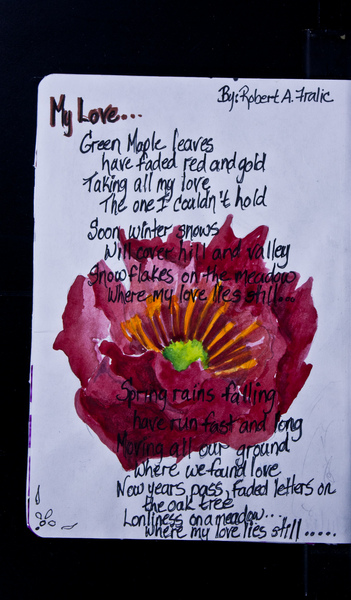 By: Robert A. Fralic
My Love...
Green Maple leaves
have faded red and gold
Taking all my love
The one I couldn't hold
Soon winter snows
Will cover hill and valley
Snowflakes on the meadow
Where my love lies still...
Spring rains falling
have run fast and long
Moving all our ground
Where we found love
Now years pass, faded letters on
the oak tree
Lonliness on a meadow...
Where my love lies still.....